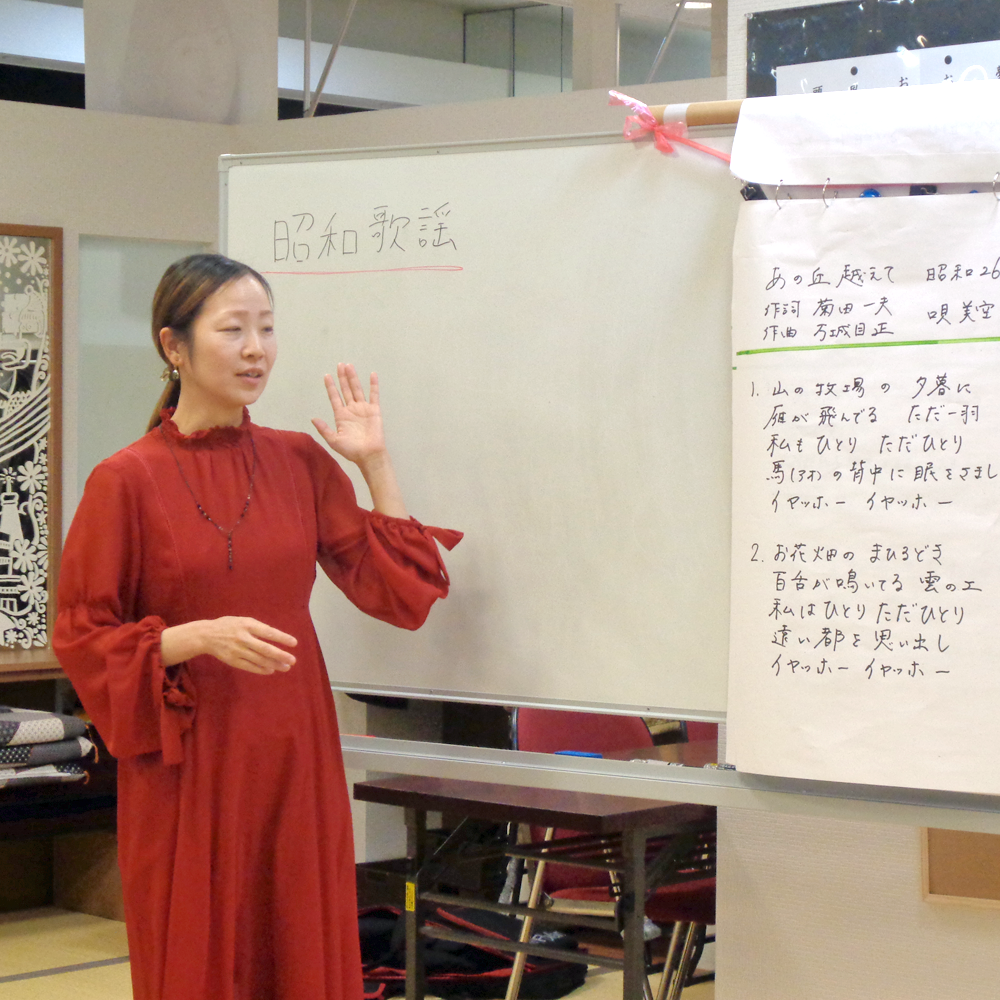 昭和歌謡
あの丘越えて 昭和26
作詞 菊田一夫 唄 美空
作曲 万城目正
1. 山の牧場の 夕暮に
雁が飛んでる ただ一羽
私もひとり ただひとり
馬(アオ)の背中に 眠をさまし
イヤッホー イヤッホー
2. お花畑の まひるどき
百舌が鳴いてる 雲の上
私はひとり ただひとり
遠い都を 思い出し
イヤッホー イヤッホー